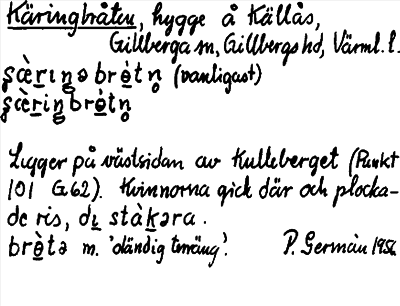 Käringbråten, hygge å Källås,
Gillberga sn, Gillbergs hd, Värml. l.
(vanligast)
Ligger på västsidan av Kulleberget (Punkt
101 G62). Kvinnorna gick där och plocka-
de ris, di̠ stàk̠əra.
brè̠tə m. 'oländig terräng'. P. Germán 1956